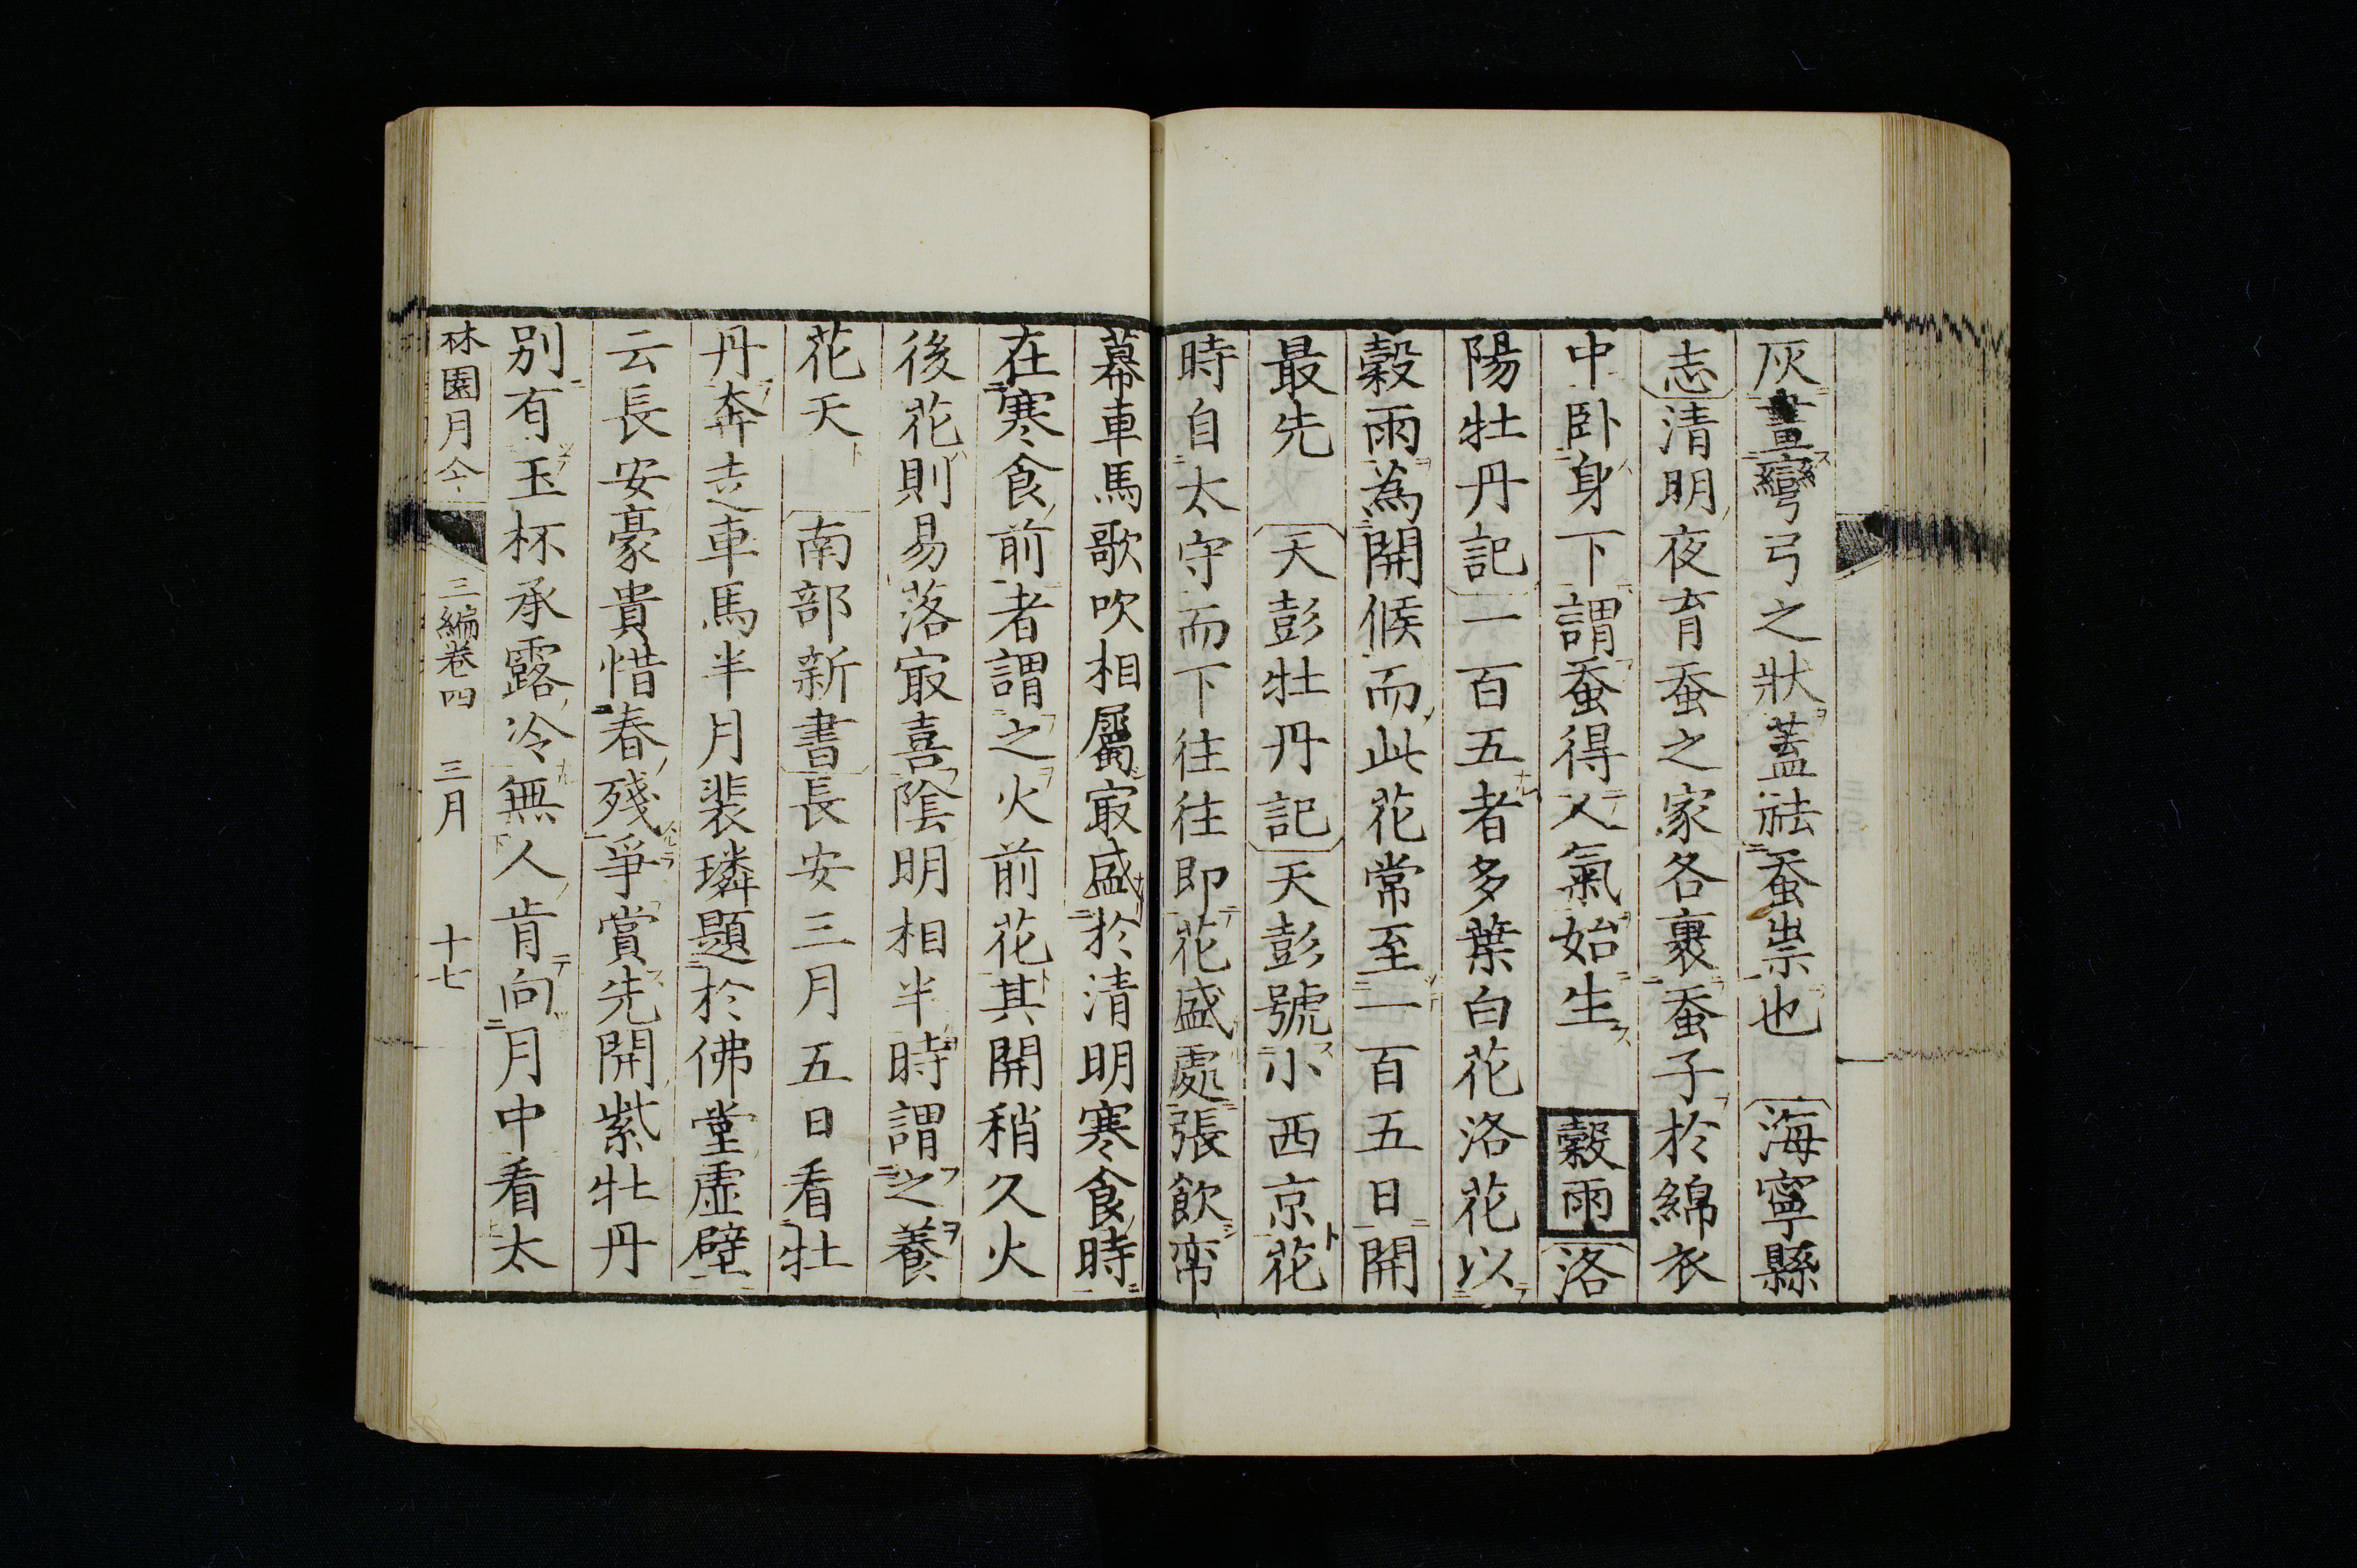 灰畫彎弓之狀蓋祛蚕祟也 海寧縣
志清明夜育蚕之家各裹蚕子於綿衣
中卧身下謂蚕得人氣始生 穀雨 洛
陽牡丹記一百五者多葉白花洛花以
穀雨為開候而此花常至一百五日開
最先 天彭牡丹記天彭號小西京花
時自太守而下往往即花盛處張飲帟
幕車馬歌吹相屬㝡盛於清明寒食時
在寒食前者謂之火前花其開稍久火
後花則易落㝡喜陰明相半時謂之養
花天 南部新書長安三月五日看牡
丹奔走車馬半月裴璘題於佛堂虛壁
云長安豪貴惜春殘爭賞先開紫牡丹
別有玉杯承露冷無人肯向月中看太
林園月令 三編卷四 三月 十七